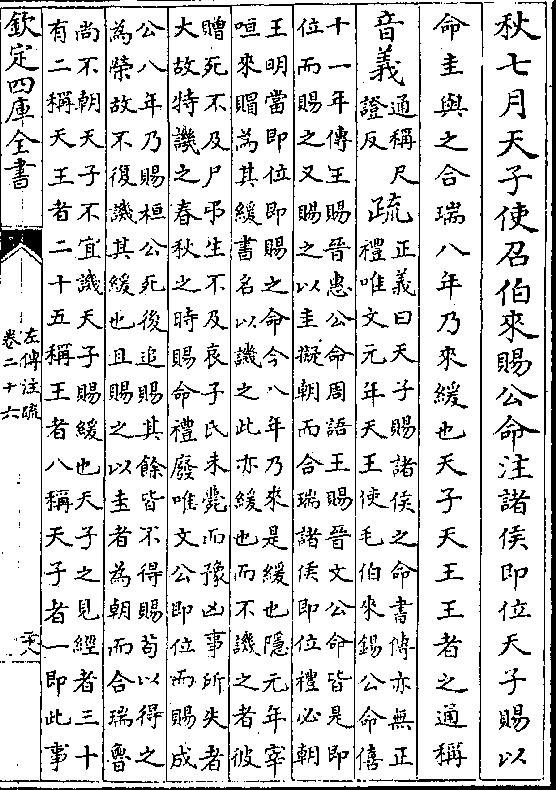 秋七月天子使召伯來賜公命注諸侯即位天子賜以
命圭與之合瑞八年乃來緩也天子天王王者之通稱
音義通稱尺證反疏正義曰天子賜諸侯之命書傳亦無正禮唯文元年天王使毛伯來錫公命僖
十一年傳王賜晉惠公命周語王賜晉文公命皆是即
位而賜之又賜之以圭擬朝而合瑞諸侯即位禮必朝
王明當即位即賜之命今八年乃來是緩也隱元年宰
咺來賵為其緩書名以譏之此亦緩也而不譏之者彼
贈死不及尸弔生不及哀子氏未薨而豫凶事所失者
大故特譏之春秋之時賜命禮廢唯文公即位而賜成
公八年乃賜桓公死後追賜其餘皆不得賜苟以得之
為榮故不復譏其緩也且賜之以圭者為朝而合瑞魯
尚不朝天子不宜譏天子賜緩也天子之見經者三十
有二稱天王者二十五稱王者八稱天子者一即此事
欽定四庫全書
左傳注疏
卷二十六